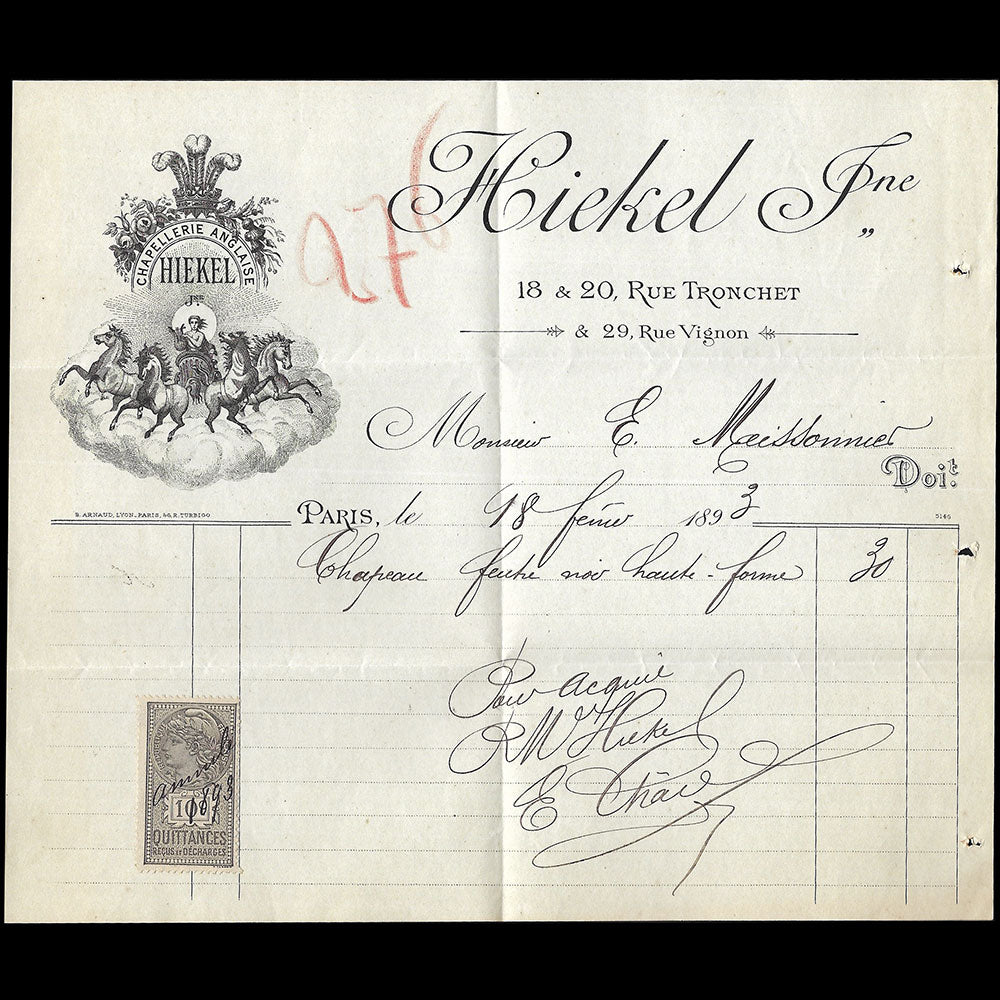 CHAPELLERIE ANGLAISE
HIEKEL
Jne.
Hiekel Jne
976
18 & 20, RUE TRONCHET
& 29, Rue Vignon
Monsieur E. Meissonnier
Doit
S. ARNAUD, LYON_PARIS, 46, R. TURBIGO
PARIS, le 18 février 1893
5146
Chapeau feutre noir haute-forme 30
Pour acquit
Hiekel
E
1893
10c
QUITTANCES
REÇUS ET DÉCHARGES